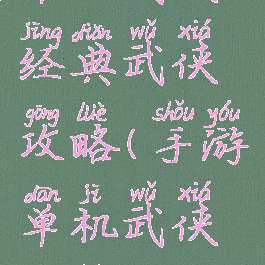 jīng diǎn wǔ xiá
经典武侠
gōng lüè shǒu yóu
攻略(手游
dān jī wǔ xiá
单机武侠